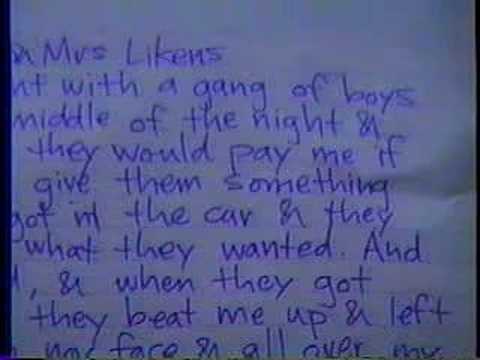 & Mrs Likens
nt with a gang of boys
middle of the night &
they would pay me if
give them something
got in the car & they
what they wanted. And
, & when they got
they beat me up & left
my face & all over my